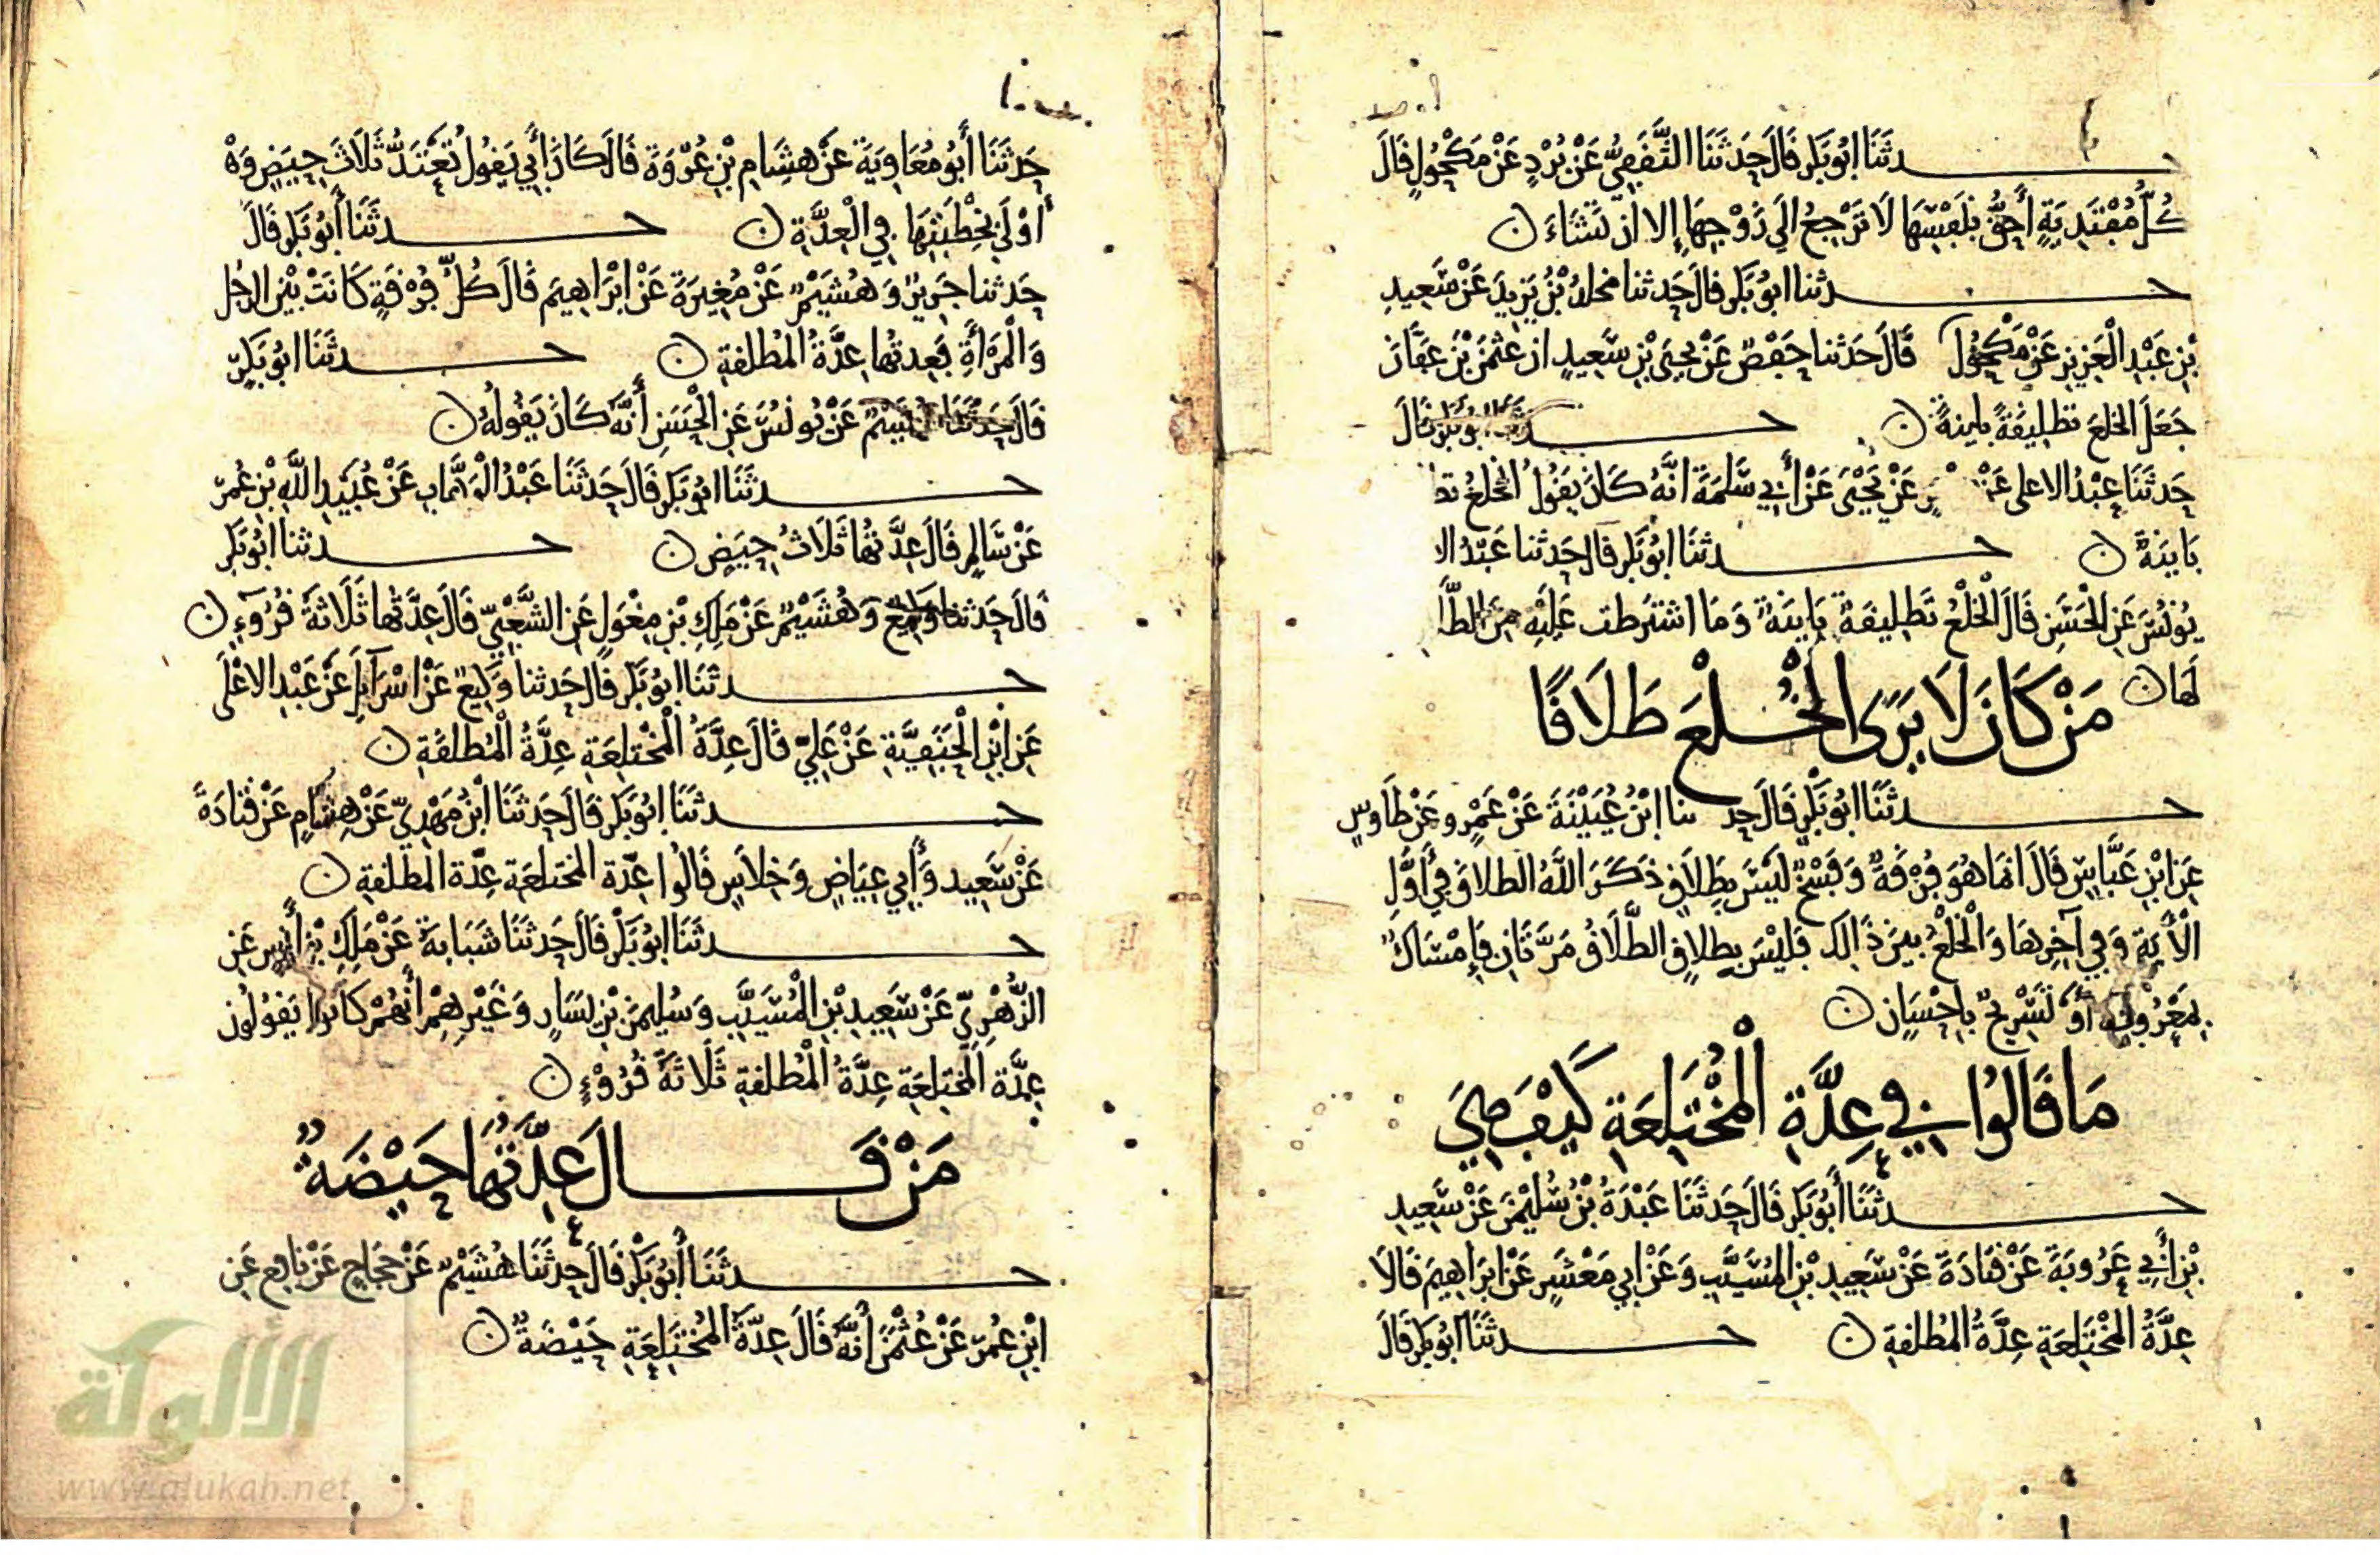 حدثَنَا ابُوبَكر قَالَ حَدثَنَا الثَّقَفِيُّ عَنْ بُرْدٍ عَنْ مَكْحُولٍ قَالَ
كُلُّ مُفْتَدِيَةٍ أَحَقُّ بنَفْسِهَا لَا تَرْجِعُ الَي زَوْجِهَا إلا ان تَشَاءَ ن
حدثنا ابُوبَكر قال حَدثنا مخلدُ بْنُ يَزِيدَ عَنْ سَعِيدِ
بْنِ عَبْدِ الْعَزِيزِ عَنْ مَكْحُول قَالَ حَدثنا حَفْصٌ عَنْ يحيَى بْنِ سَعِيدٍ ان عثمنَ بْنَ عَفَّانَ
جَعَلَ الخلعَ تطلِيقَةً باينةً ن حدثَنَا ابُوبَكر قَالَ
حَدثَنَا عبْدُ الاعلى عَنْ عَنْ يَحْيَى عَنْ أبي سَلمَةَ انَّهُ كَانَ يَقُولُ الخلعُ تط
بَاينَةٌ ن حدثنَا ابُوبَكر قال حَدثنا عَبْدُ الا
يُونُسَ عَنِ الْحَسَنِ قَالَ الْخلْعُ تَطلِيقَةٌ بَاينَةٌ وَمَا اشتَرطت عَليْهِ مِنَ الطَّلَا
لهَا ن مَنْ كَانَ لَا يَرَى الْخُلْعَ طَلَاقًا
حدثَنَا ابُوبَكر قَالَ حَد ثنا ابْنُ عُيَيْنَةَ عَنْ عَمْرٍو عَنْ طَاوسٍ
عَنِ ابْنِ عَبَّاسٍ قَالَ انمَا هُوَ فُرْقَةٌ وَفَسْخٌ لَيْسَ بِطَلَاقٍ ذَكَرَ اللَّهُ الطلاقَ في أَوَّلِ
الْأيَةِ وَفِي آخِرِهَا وَالْخلْعُ بينَ ذَالِك فَليْسَ بِطلاقٍ الطَّلَاقُ مَرَّتَانِ فَإِمْسَاكٌ
بِمَعْرُوفٍ أَوْ تَسْرِيحٌ بِإحْسَانٍ ن
مَا قَالُوا في عِدَّةِ الْمُخْتَلِعَةِ كَيْفَ هِيَ
حدثَنَا أَبُوبَكر قَالَ حَدثَنَا عَبْدَةُ بْنُ سُليْمَنَ عَنْ سَعِيدِ
بْنِ أَبِي عَرُوبَةَ عَنْ قتَادَةَ عَنْ سَعِيدِ بْنِ المُسَيَّبِ وَعَنْ ابي مَعْشَرٍ عَنْ ابرَاهِيمَ قَالَا
عِدَّةُ المُخْتَلِعَةِ عِدَّةُ المُطلقةِ ن حدثَنَا ابُوبَكر قَالَ
حَدثَنَا أَبُو مُعَاوِيَةَ عَنْ هشَامِ بْنِ عُرْوَةَ قَالَ كَانَ أَبِي يَقُولُ تَعْتَدُّ ثَلَاثَ حِيَضٍ وَهْ
أَوْلَى بخِطْبَتِهَا في الْعِدَّةِ ن حدثَنَا أَبُوبَكر قَالَ
حَدثنا جَرِيرٌ وَهُشَيْمٌ عَنْ مُغِيرَةَ عَنْ ابْرَاهِيمَ قَالَ كُلُّ فُرْقَةٍ كَانَتْ بَيْنَ الرجُل
وَالْمَرْأَةِ فَعِدتُهَا عِدَّةُ المُطلقةِ ن حدثَنَا ابُوبَكرٍ
قَالَ حَدثَنَا هُشَيْمٌ عَنْ يُونُسَ عَنِ الْحَسَنِ أَنَّهُ كَانَ يَقُولُهُ ن
حدثَنَا ابُوبَكر قَالَ حَدثَنَا عَبْدُ الْوَهَّابِ عَنْ عُبَيْدِ اللَّهِ بْنِ عُمَرَ
عَنْ سَالِمٍ قَالَ عِدَّتُهَا ثَلَاثُ حِيَضٍ ن حدثنا ابُوبَكر
قَالَ حَدثنا وَكِيعٌ وَهُشَيْمٌ عَنْ مَلِكِ بْنِ مِغْوَلٍ عَنِ الشَّعْبِيِّ قَالَ عِدَّتُهَا ثَلَاثَةُ قُرُوَءٍ ن
حدثَنَا ابُوبَكر قَالَ حَدثنا وَكِيعٌ عَنْ اسْرَآيلَ عَنْ عَبْدِ الاعْلَى
عَنِ ابْنِ الْحَنَفِيَّةِ عَنْ عَلِيٍّ قَالَ عِدَّةُ الْمُخْتلِعَةِ عِدَّةُ الْمُطلقَةِ ن
حدثَنَا ابُوبَكر قَالَ حَدثَنَا ابْنُ مَهْدِيٍّ عَنْ هِشَامٍ عَنْ قتَادَةَ
عَنْ سَعِيدٍ وَأَبِي عِيَاضٍ وَخِلاسٍ قَالُوا عِدّة المختلعَةِ عِدّة المطلقةِ ن
حدثَنَا ابُوبَكر قَالَ حَدثَنَا شَبَابةُ عَنْ مَلِكِ بْنِ أَنَسٍ عَنِ
الزُّهْرِيِّ عَنْ سَعِيدِ بْنِ الْمُسَيَّبِ وَسُليمَنَ بْنِ يَسَارٍ وَغَيْرِهِمْ أَنَّهُمْ كَانُوا يَقُولُونَ
عِدَّة الْمُختلِعَةِ عِدَّةُ الْمُطلقةِ ثَلَاثَةُ قُرُوْءٍ ن
مَنْ قَالَ عِدَّتُهَا حَيْضَةٌ
حدثَنَا أَبُوبَكْر قَالَ حَدثَنَا هُشَيْمٌ عَنْ حَجَاجٍ عَنْ نَافِعٍ عَنِ
ابْنِ عُمَرَ عَنْ عُثْمنَ أَنَّهُ قَالَ عِدّةُ الْمُخْتَلِعَةِ حَيْضَةٌ ن
الألوكة
www.alukah.net